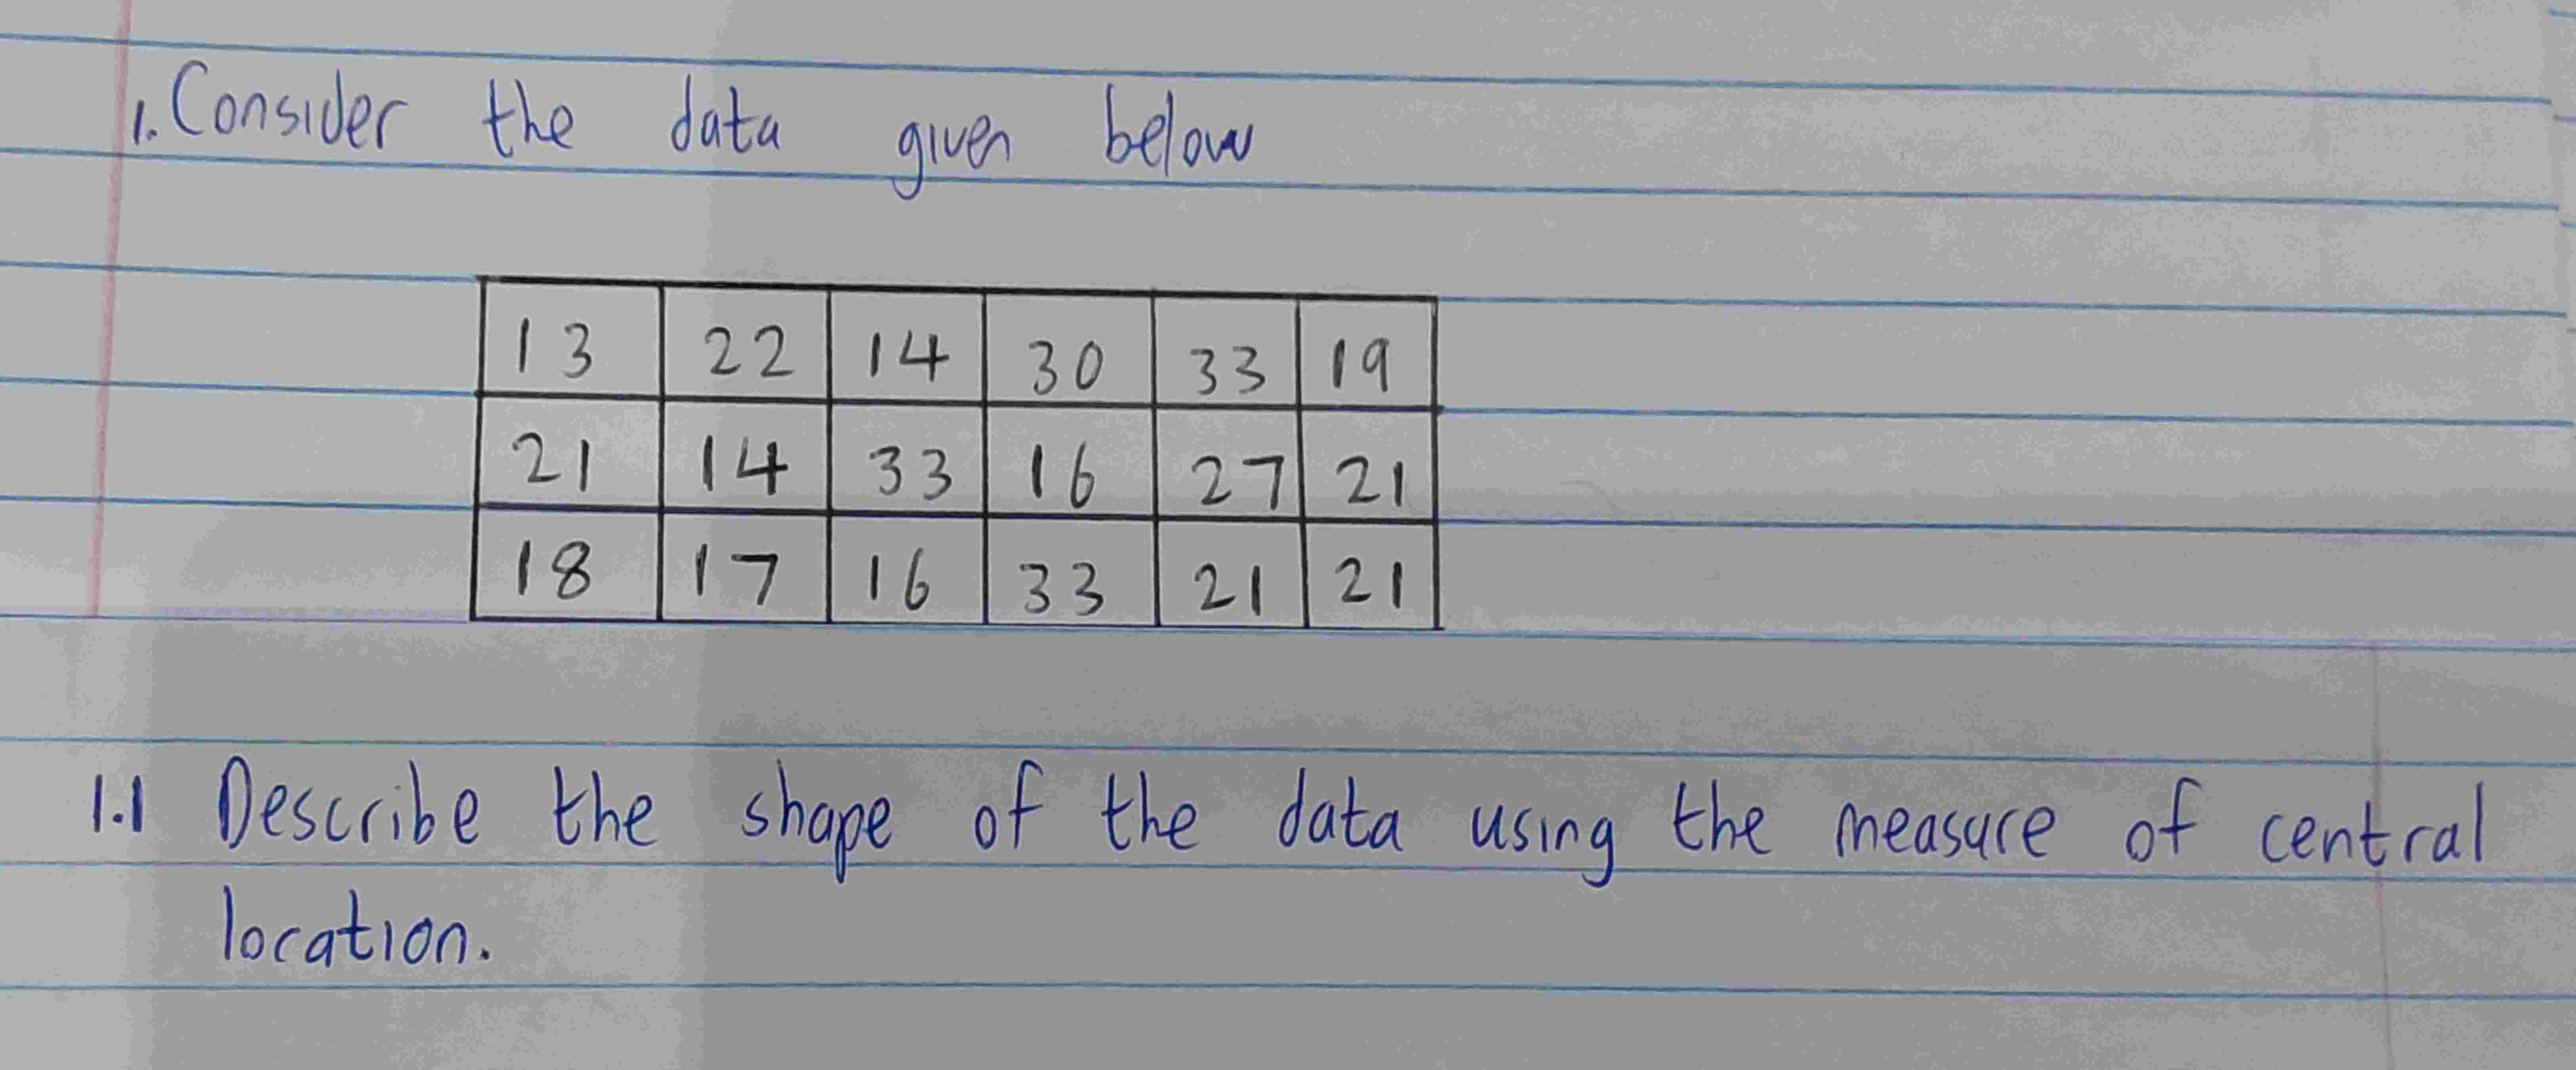 1. Consider the data given below
13 22 14 30 33 19
21 14 33 16 27 21
18 17 16 33 21 21
1.1 Describe the shape of the data using the measure of central
location.